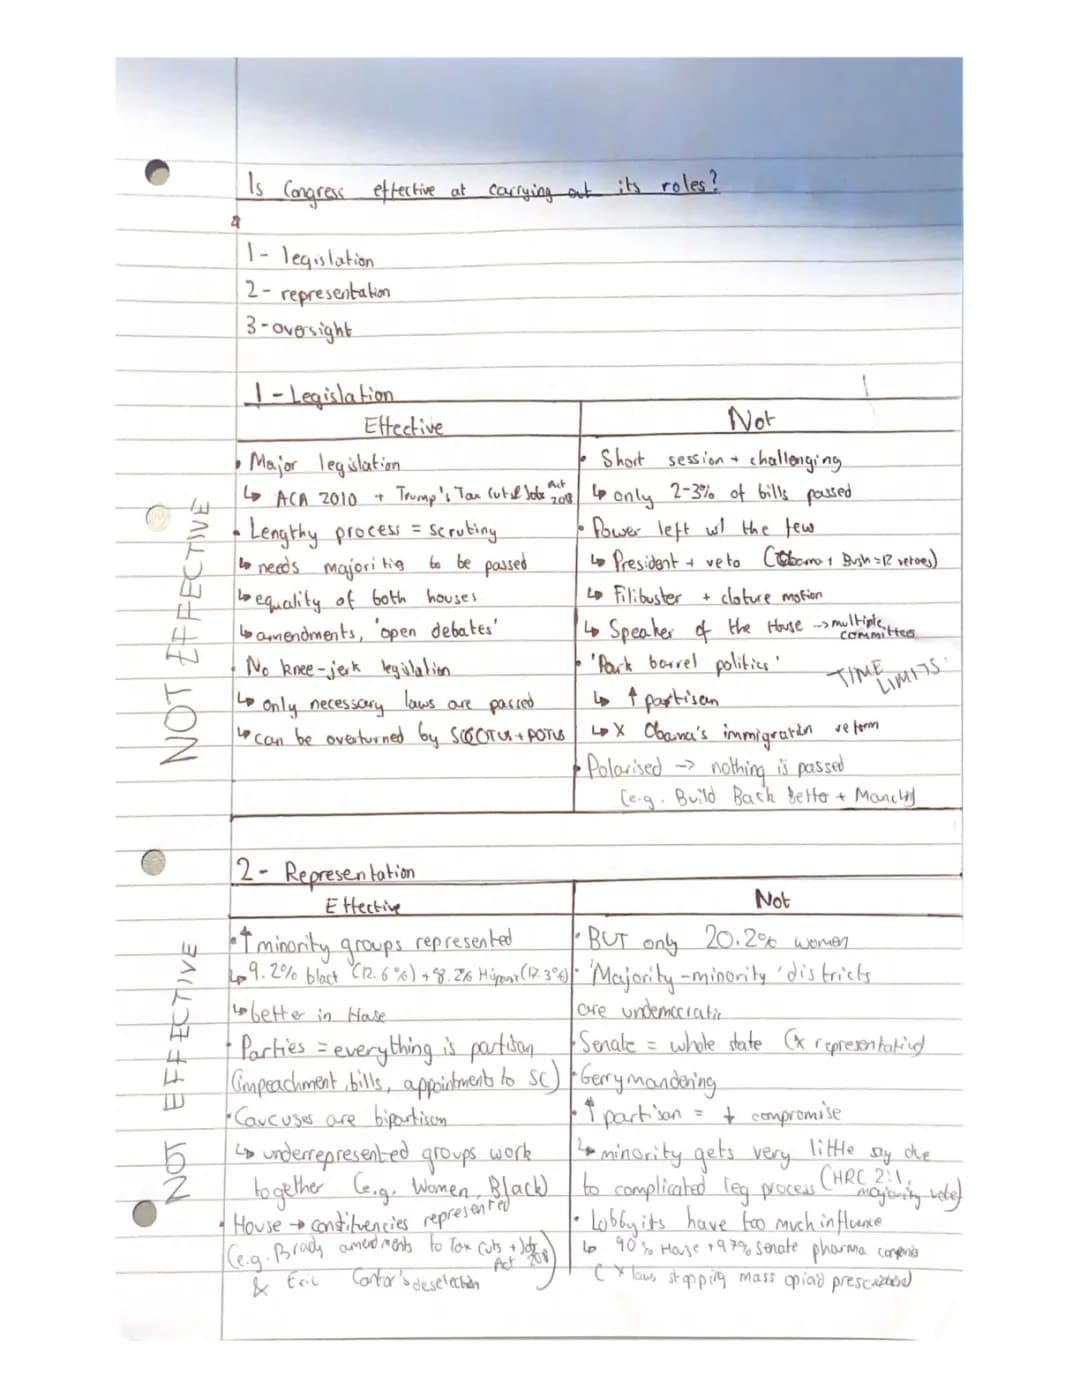 Is Congress effective at carrying out its roles?
1- legislation
2- representation
3-oversight
1-Legislation
Effective
• Major legislation
↳ ACA 2010 + Trump's Tax Cuts & Jobs Act 2018
• Lengthy process = scrutiny
↳ needs majorities to be passed
↳ equality of both houses
↳ amendments, 'open debates'
• No knee-jerk legislation
↳ only necessary laws are passed
↳ can be overturned by SCOTUS + POTUS
Not
• Short session + challenging
↳ only 2-3% of bills passed
• Power left w/ the few
↳ President + veto (Obama + Bush = 12 vetoes)
↳ Filibuster + cloture motion
↳ Speaker of the House → multiple committees
• 'Pork barrel politics'
TIME LIMITS
↳ ↑ partisan
↳ X Obama's immigration reform
• Polarised → nothing is passed
(e.g. Build Back Better + Manchin)
NOT EFFECTIVE
2- Representation
Effective
• ↑ minority groups represented
↳ 9.2% black (12.6%) + 8.2% Hispanic (17.3%)
↳ better in House
• Parties = everything is partisan
(impeachment, bills, appointments to SC)
• Caucuses are bipartisan
↳ underrepresented groups work
together (e.g. Women, Black)
• House → constituencies represented
(e.g. Brady amendments to Tax Cuts + Jobs Act 2018)
& Eric Cantor's deselection
Not
• BUT only 20.2% women
• 'Majority-minority' districts
are undemocratic
• Senate = whole state (x representative)
• Gerrymandering
• ↑ partisan = ↓ compromise
↳ minority gets very little say due
to complicated leg process (HRC 2:1, majority vote)
• Lobbyists have too much influence
↳ 90% House + 97% Senate pharma companies
(X laws stopping mass opiod prescriptions)
NOT EFFECTIVE